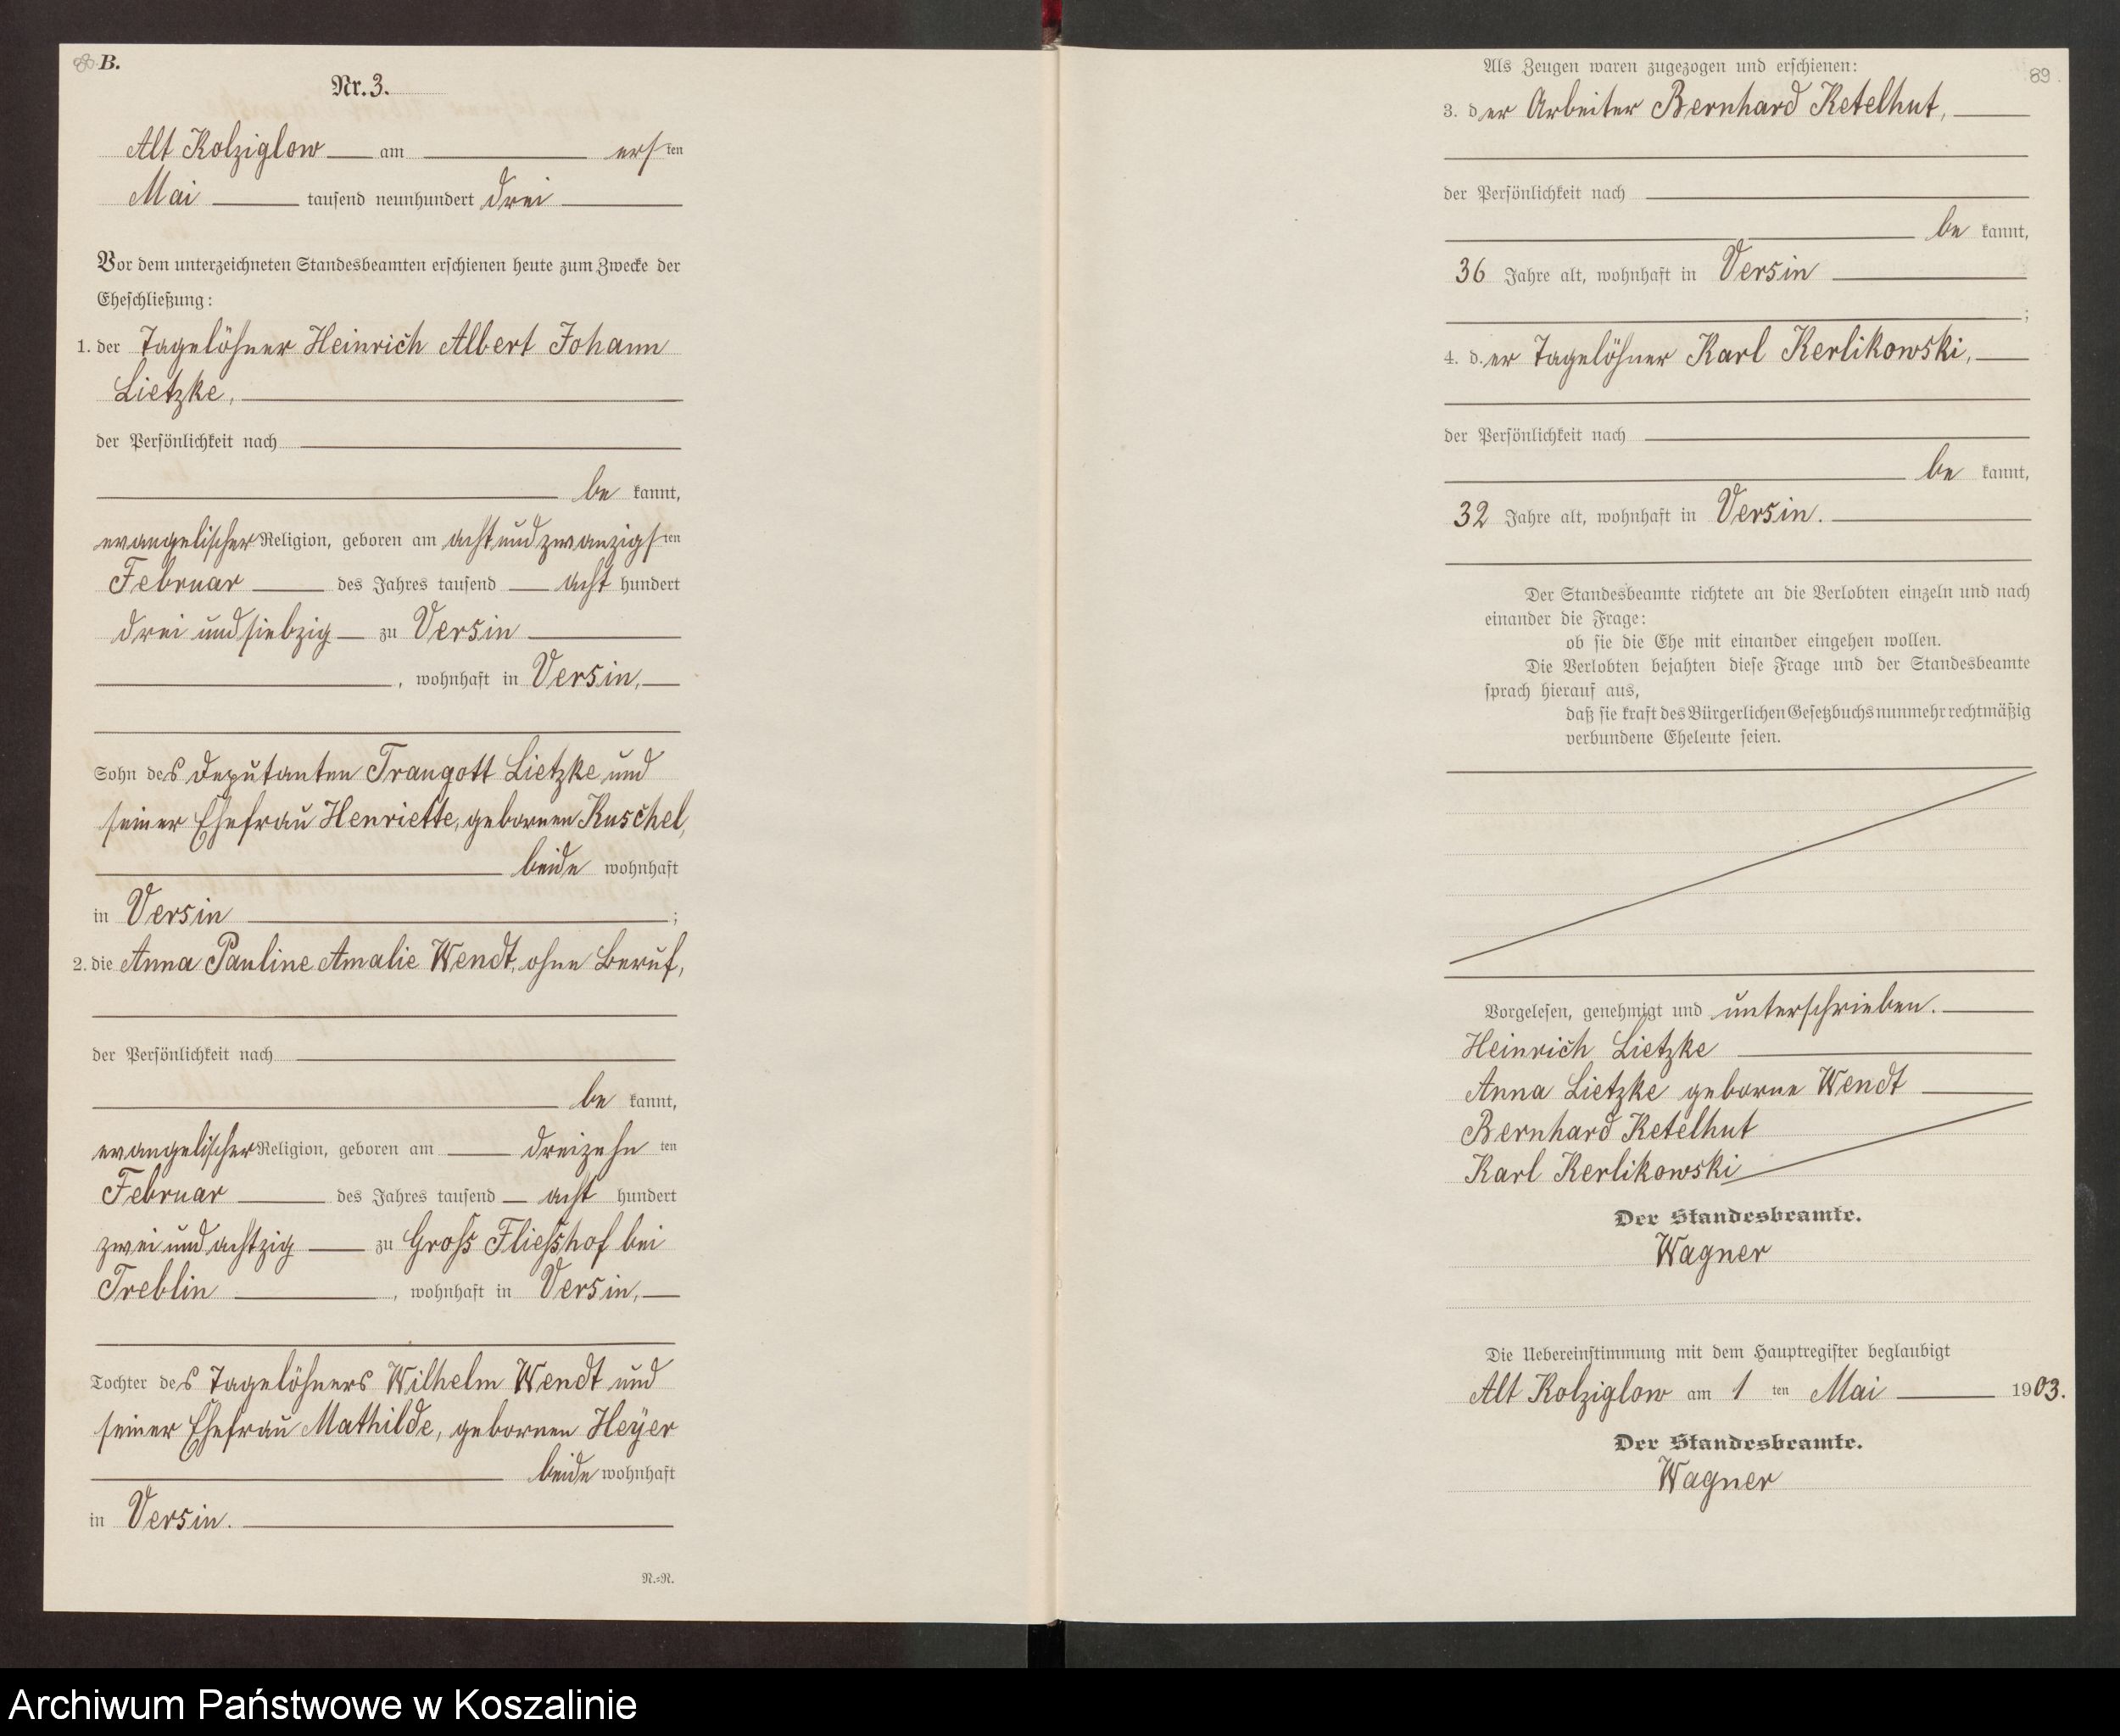 B.
Nr. 3.
Alt Kolziglow am ersten
Mai tausend neunhundert drei
Vor dem unterzeichneten Standesbeamten erschienen heute zum Zwecke der
Eheschließung:
1. der Tagelöhner Heinrich Albert Johann
Lietzke,
der Persönlichkeit nach
be kannt,
evangelischer Religion, geboren am acht und zwanzigsten
Februar des Jahres tausend acht hundert
drei und siebzig zu Versin
, wohnhaft in Versin,
Sohn des Deputanten Traugott Lietzke und
seiner Ehefrau Henriette, gebornen Kuschel,
beide wohnhaft
in Versin ;
2. die Anna Pauline Amalie Wendt, ohne Beruf,
der Persönlichkeit nach
be kannt,
evangelischer Religion, geboren am dreizehn ten
Februar des Jahres tausend acht hundert
zwei und achtzig zu Gross Fliesshof bei
Treblin , wohnhaft in Versin,
Tochter des Tagelöhners Wilhelm Wendt und
seiner Ehefrau Mathilde, gebornen Heyer
beide wohnhaft
in Versin.
N.=R.
89.
Als Zeugen waren zugezogen und erschienen:
3. der Arbeiter Bernhard Ketelhut,
der Persönlichkeit nach
be kannt,
36 Jahre alt, wohnhaft in Versin
;
4. d.er Tagelöhner Karl Kerlikowski,
der Persönlichkeit nach
be kannt,
32 Jahre alt, wohnhaft in Versin.
Der Standesbeamte richtete an die Verlobten einzeln und nach
einander die Frage:
ob sie die Ehe mit einander eingehen wollen.
Die Verlobten bejahten diese Frage und der Standesbeamte
sprach hierauf aus,
daß sie kraft des Bürgerlichen Gesetzbuchs nunmehr rechtmäßig
verbundene Eheleute seien.
Vorgelesen, genehmigt und unterschrieben.
Heinrich Lietzke
Anna Lietzke geborne Wendt
Bernhard Ketelhut
Karl Kerlikowski
Der Standesbeamte.
Wagner
Die Uebereinstimmung mit dem Hauptregister beglaubigt
Alt Kolziglow am 1 ten Mai 1903.
Der Standesbeamte.
Wagner
Archiwum Państwowe w Koszalinie